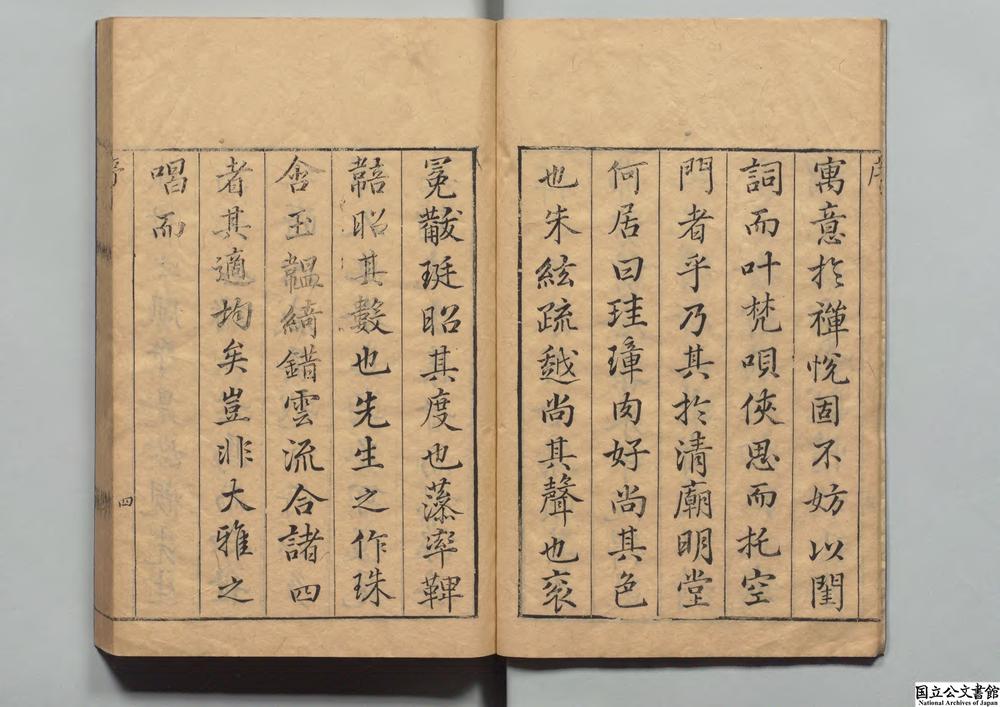 寓意於禪悅固不妨以閨
詞而叶梵唄俠思而托空
門者乎乃其於清廟明堂
何居曰珪璋肉好尚其色
也朱絃疏越尚其聲也衮
冕黻珽昭其度也藻率鞞
鞛昭其數也先生之作珠
含玉韞綺錯雲流合諸四
者其適均矣豈非大雅之
唱而
四
国立公文書館
National Archives of Japan